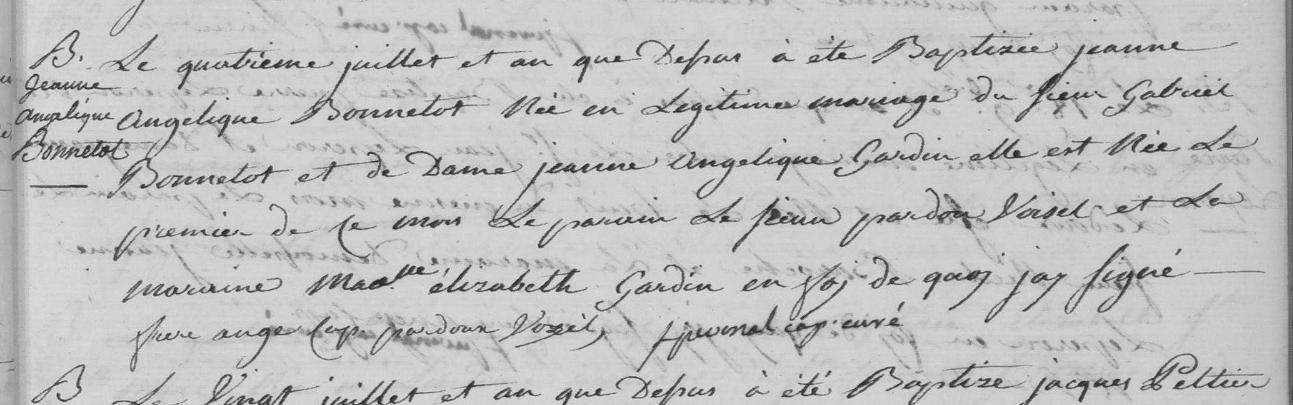 B.
Jeanne
Angelique
Bonnetot
Le quatrieme juillet et an que Depus à été Baptizée jeanne
Angelique Bonnetot Née en Legitime mariage du sieur Gabriel
Bonnetot et de Dame jeanne Angelique Gardin elle est Née Le
premier de Ce mois Le parain Le sieur pardoux Voisel et La
maraine Madelle élizabeth Gardin en foj de quoj jay signé
frere ange Cap pardoux Voisel, f juvenal cap. curé
B Le Vingt juillet et an que Depus à été Baptizé jacques Peltier